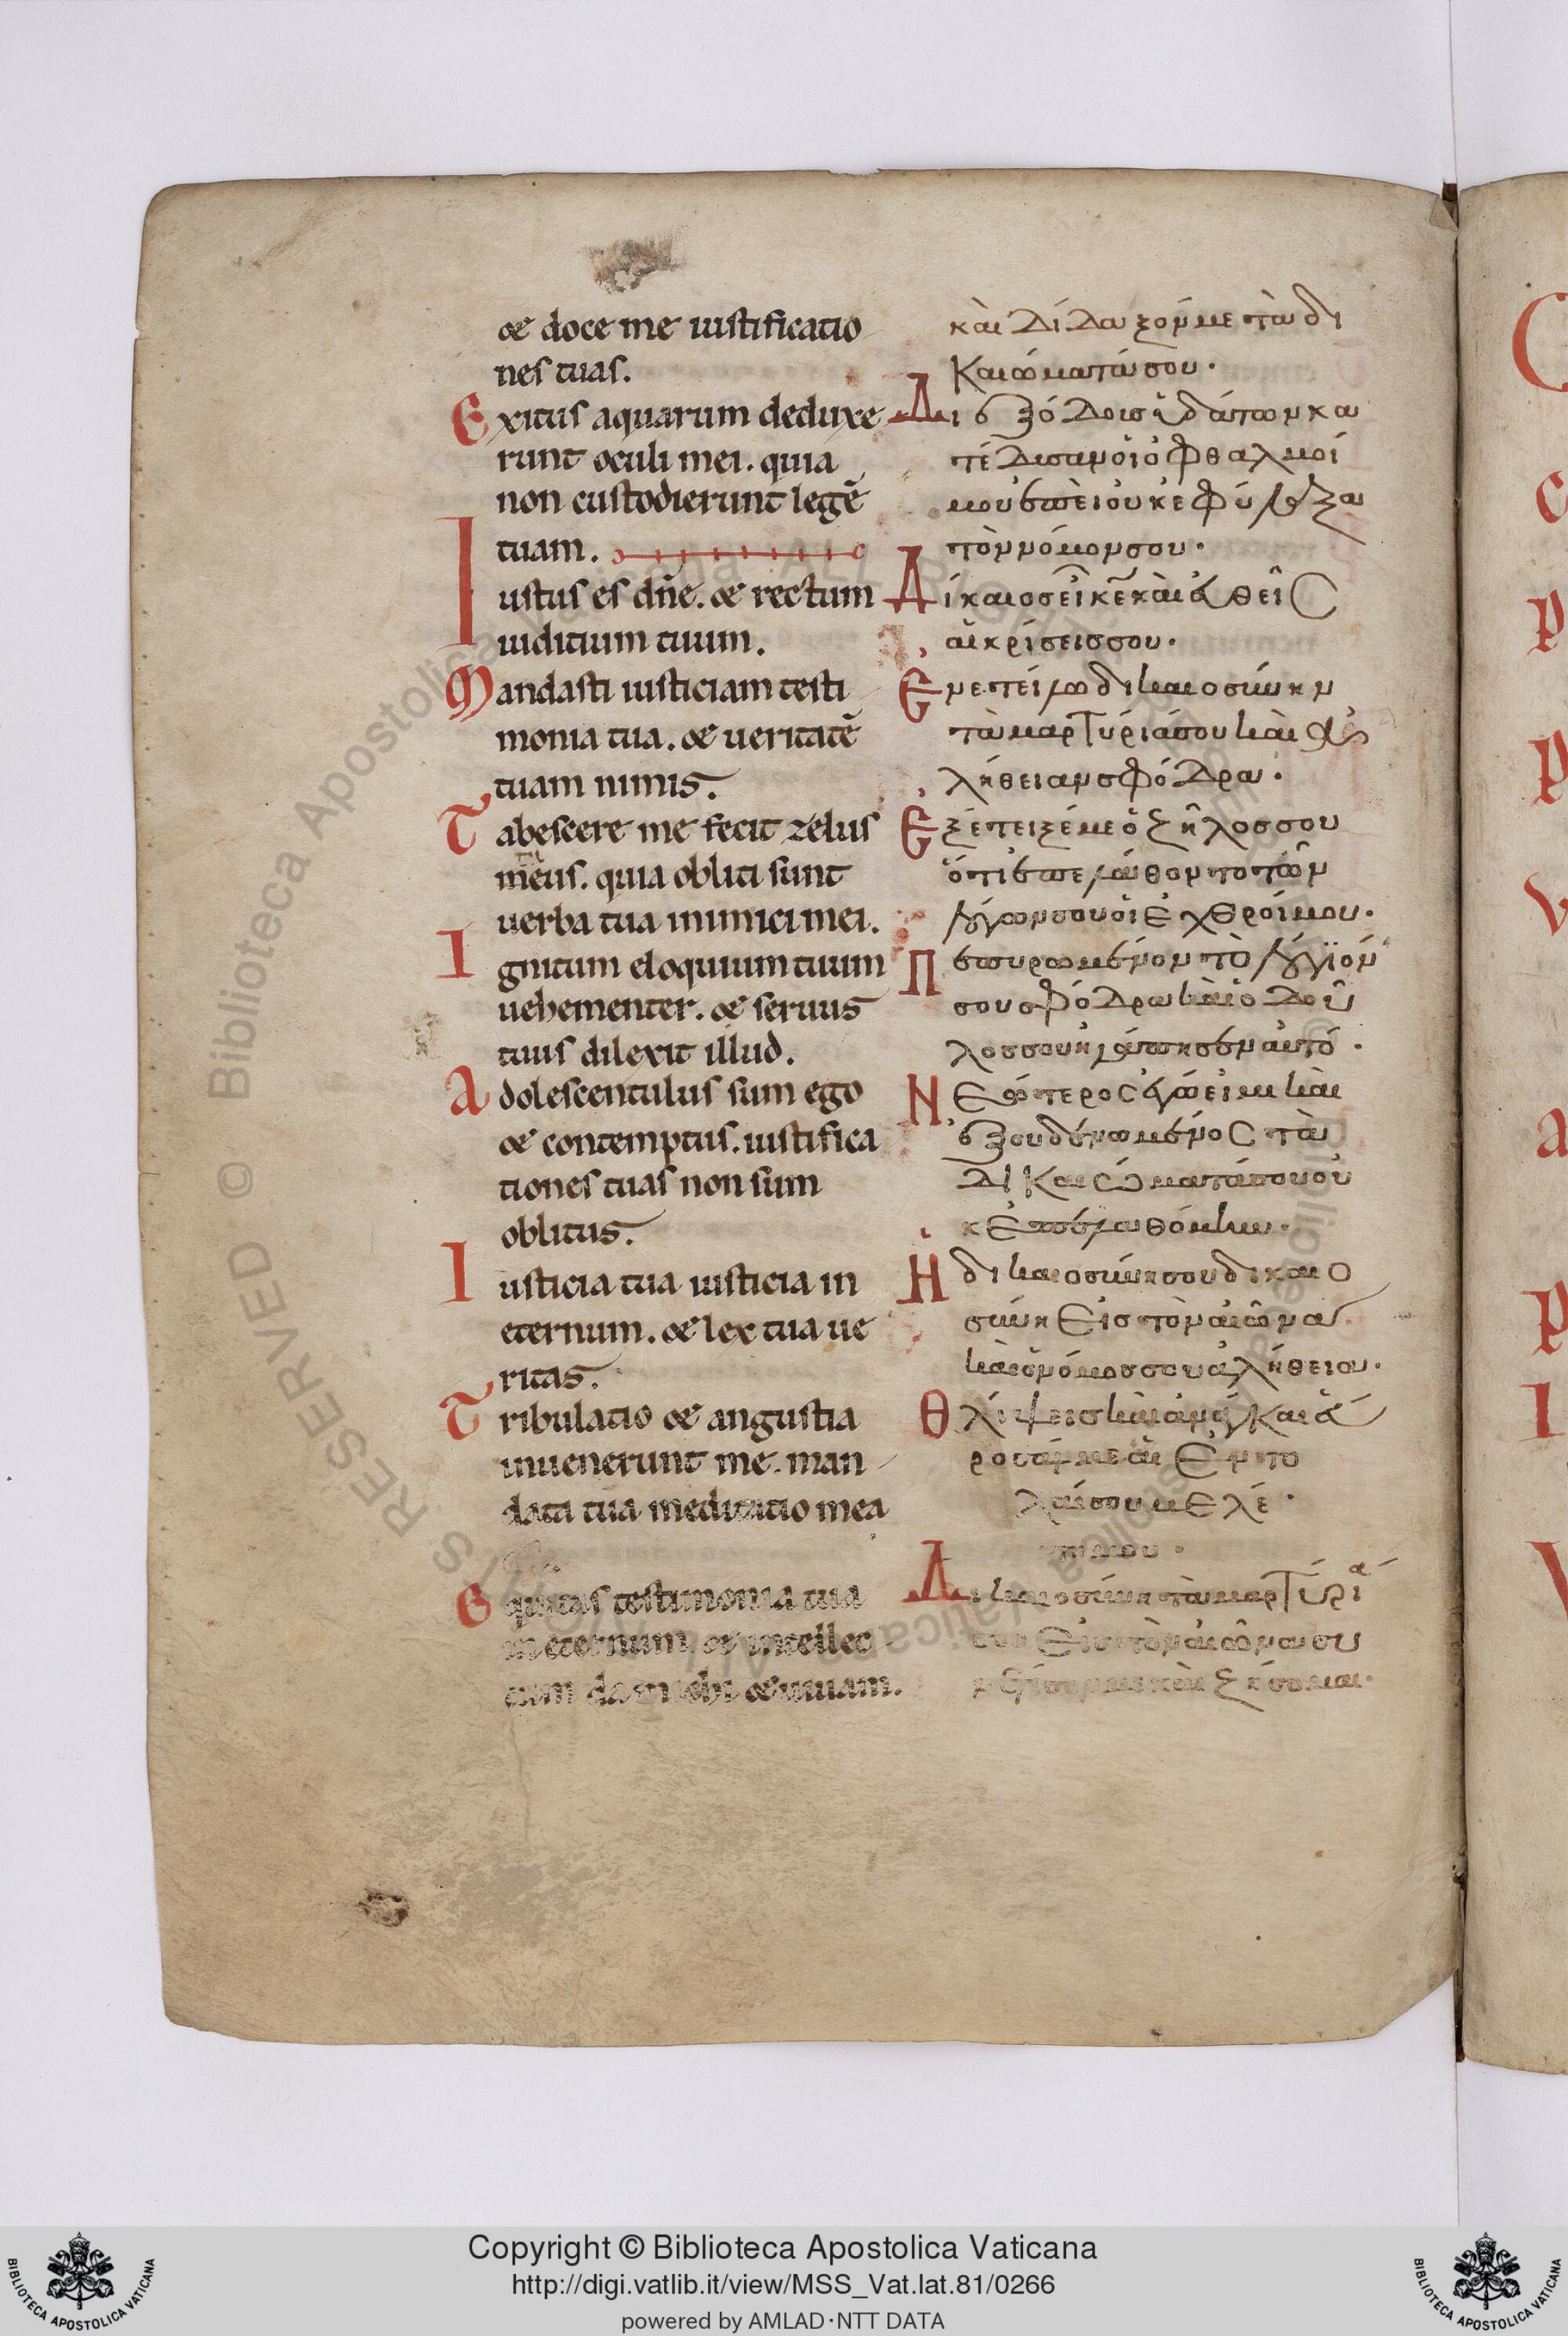 & doce me iustificatio
nes tuas.
Exitus aquarum deduxe
runt oculi mei. quia
non custodierunt legē
tuam.
Iustus es dñe. & rectum
iuditium tuum.
Mandasti iusticiam testi
monia tua. & ueritatē
tuam nimis.
Tabescere me fecit zelus
meus. quia obliti sunt
uerba tua inimici mei.
Ignitum eloquium tuum
uehementer. & seruus
tuus dilexit illud.
Adolescentulus sum ego
& contemptus. iustifica
tiones tuas non sum
oblitus.
Iusticia tua iusticia in
eternum. & lex tua ue
ritas.
Tribulatio & angustia
inuenerunt me. man
data tua meditatio mea
Equitas testimonia tua
in eternum. & intellec
tum da michi & uiuam.
καὶ δίδαξόν με τὰ δι
καιώματά σου.
Διεξόδοις ὑδάτων κα
τέδυσαν οἱ ὀφθαλμοί
μου ἐπεὶ οὐκ ἐφύλαξα
τὸν νόμον σου.
Δίκαιος εἶ κε̄ καὶ εὐθεῖς
αἱ κρίσεις σου.
Ενετείλω δικαιοσύνην
τὰ μαρτύριά σου καὶ ἀ
λήθειαν σφόδρα.
Εξέτειξέ με ὁ ζῆλος σου
ὅτι ἐπελάθοντο τῶν
λόγων σου οἱ ἐχθροί μου.
Πεπυρωμένον τὸ λόγιόν
σου σφόδρα καὶ ὁ δοῦ
λος σου ἠγάπησεν αὐτό.
Νεώτερος ἐγώ εἰμι καὶ
ἐξουδενωμένος τὰ
δικαιώματά σου οὐ
κ ἐπελαθόμην.
Ἡ δικαιοσύνη σου δικαιο
σύνη εἰς τὸν αἰῶνα
καὶ ὁ νόμος σου ἀλήθεια.
Θλίψεις καὶ ἀνάγκαι εὕ
ροσάν με αἱ ἐντο
λαί σου μελέ
τη μου.
Δικαιοσύνη τὰ μαρτύριά
σου εἰς τὸν αἰῶνα συ
νέτισόν με καὶ ζήσομαι.
Copyright © Biblioteca Apostolica Vaticana
http://digi.vatlib.it/view/MSS_Vat.lat.81/0266
powered by AMLAD·NTT DATA